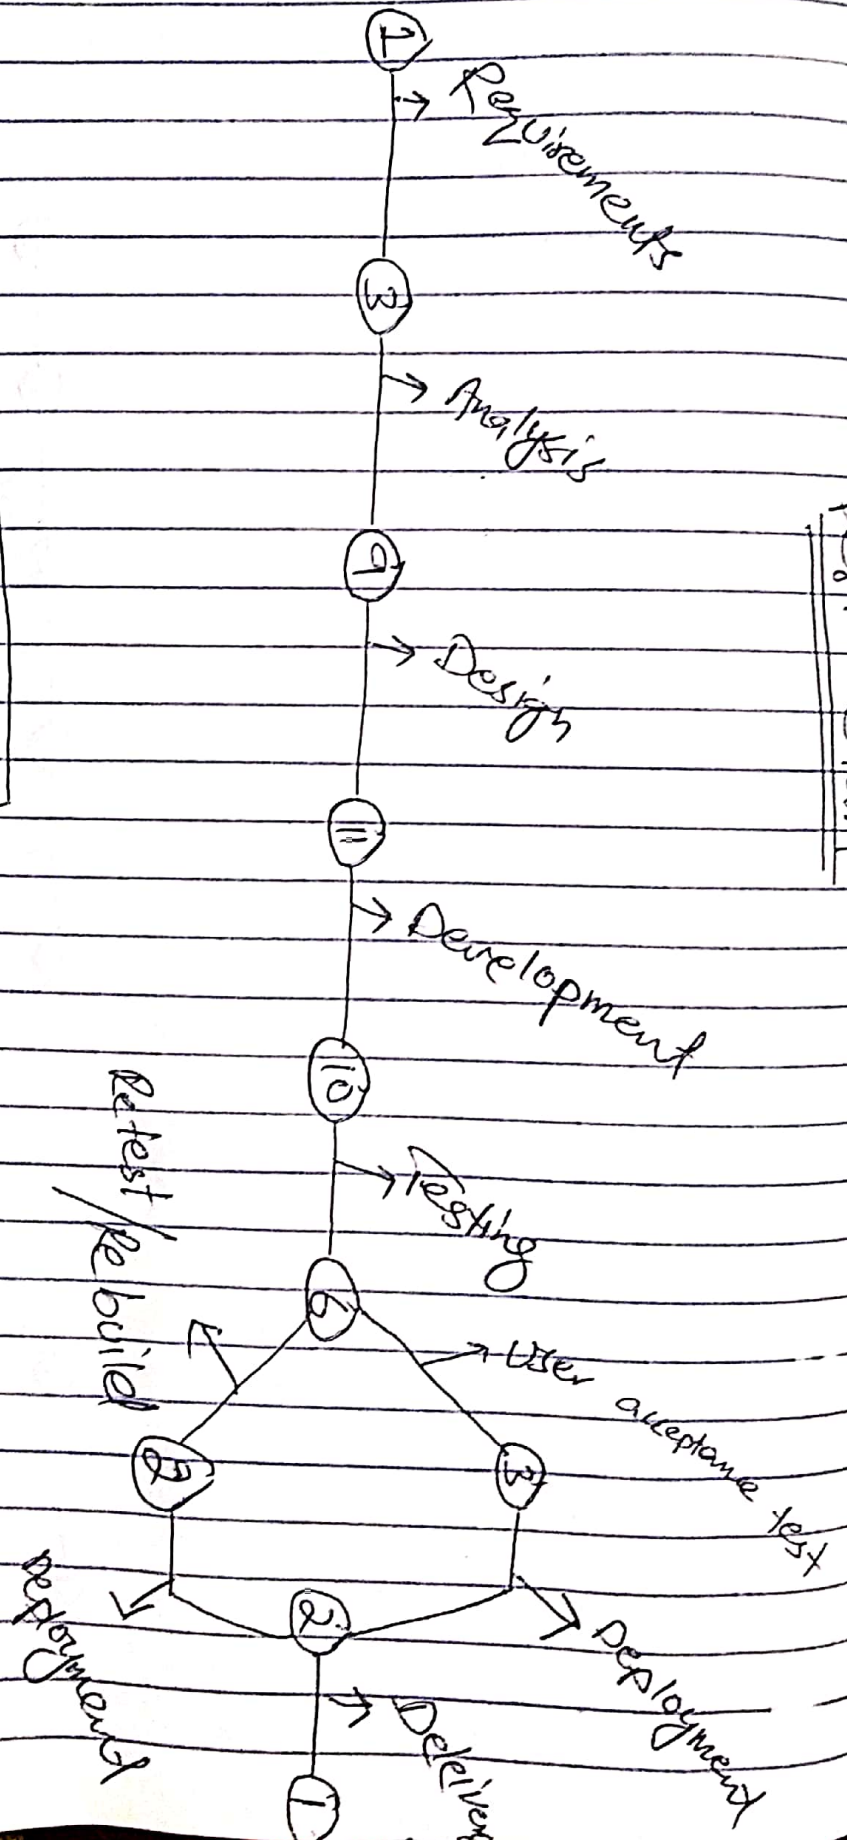 1
Requirements
3
Analysis
9
Design
11
Development
10
Testing
6
User acceptance test
Retest/Rebuild
3
5
Deployment
Deployment
2
1